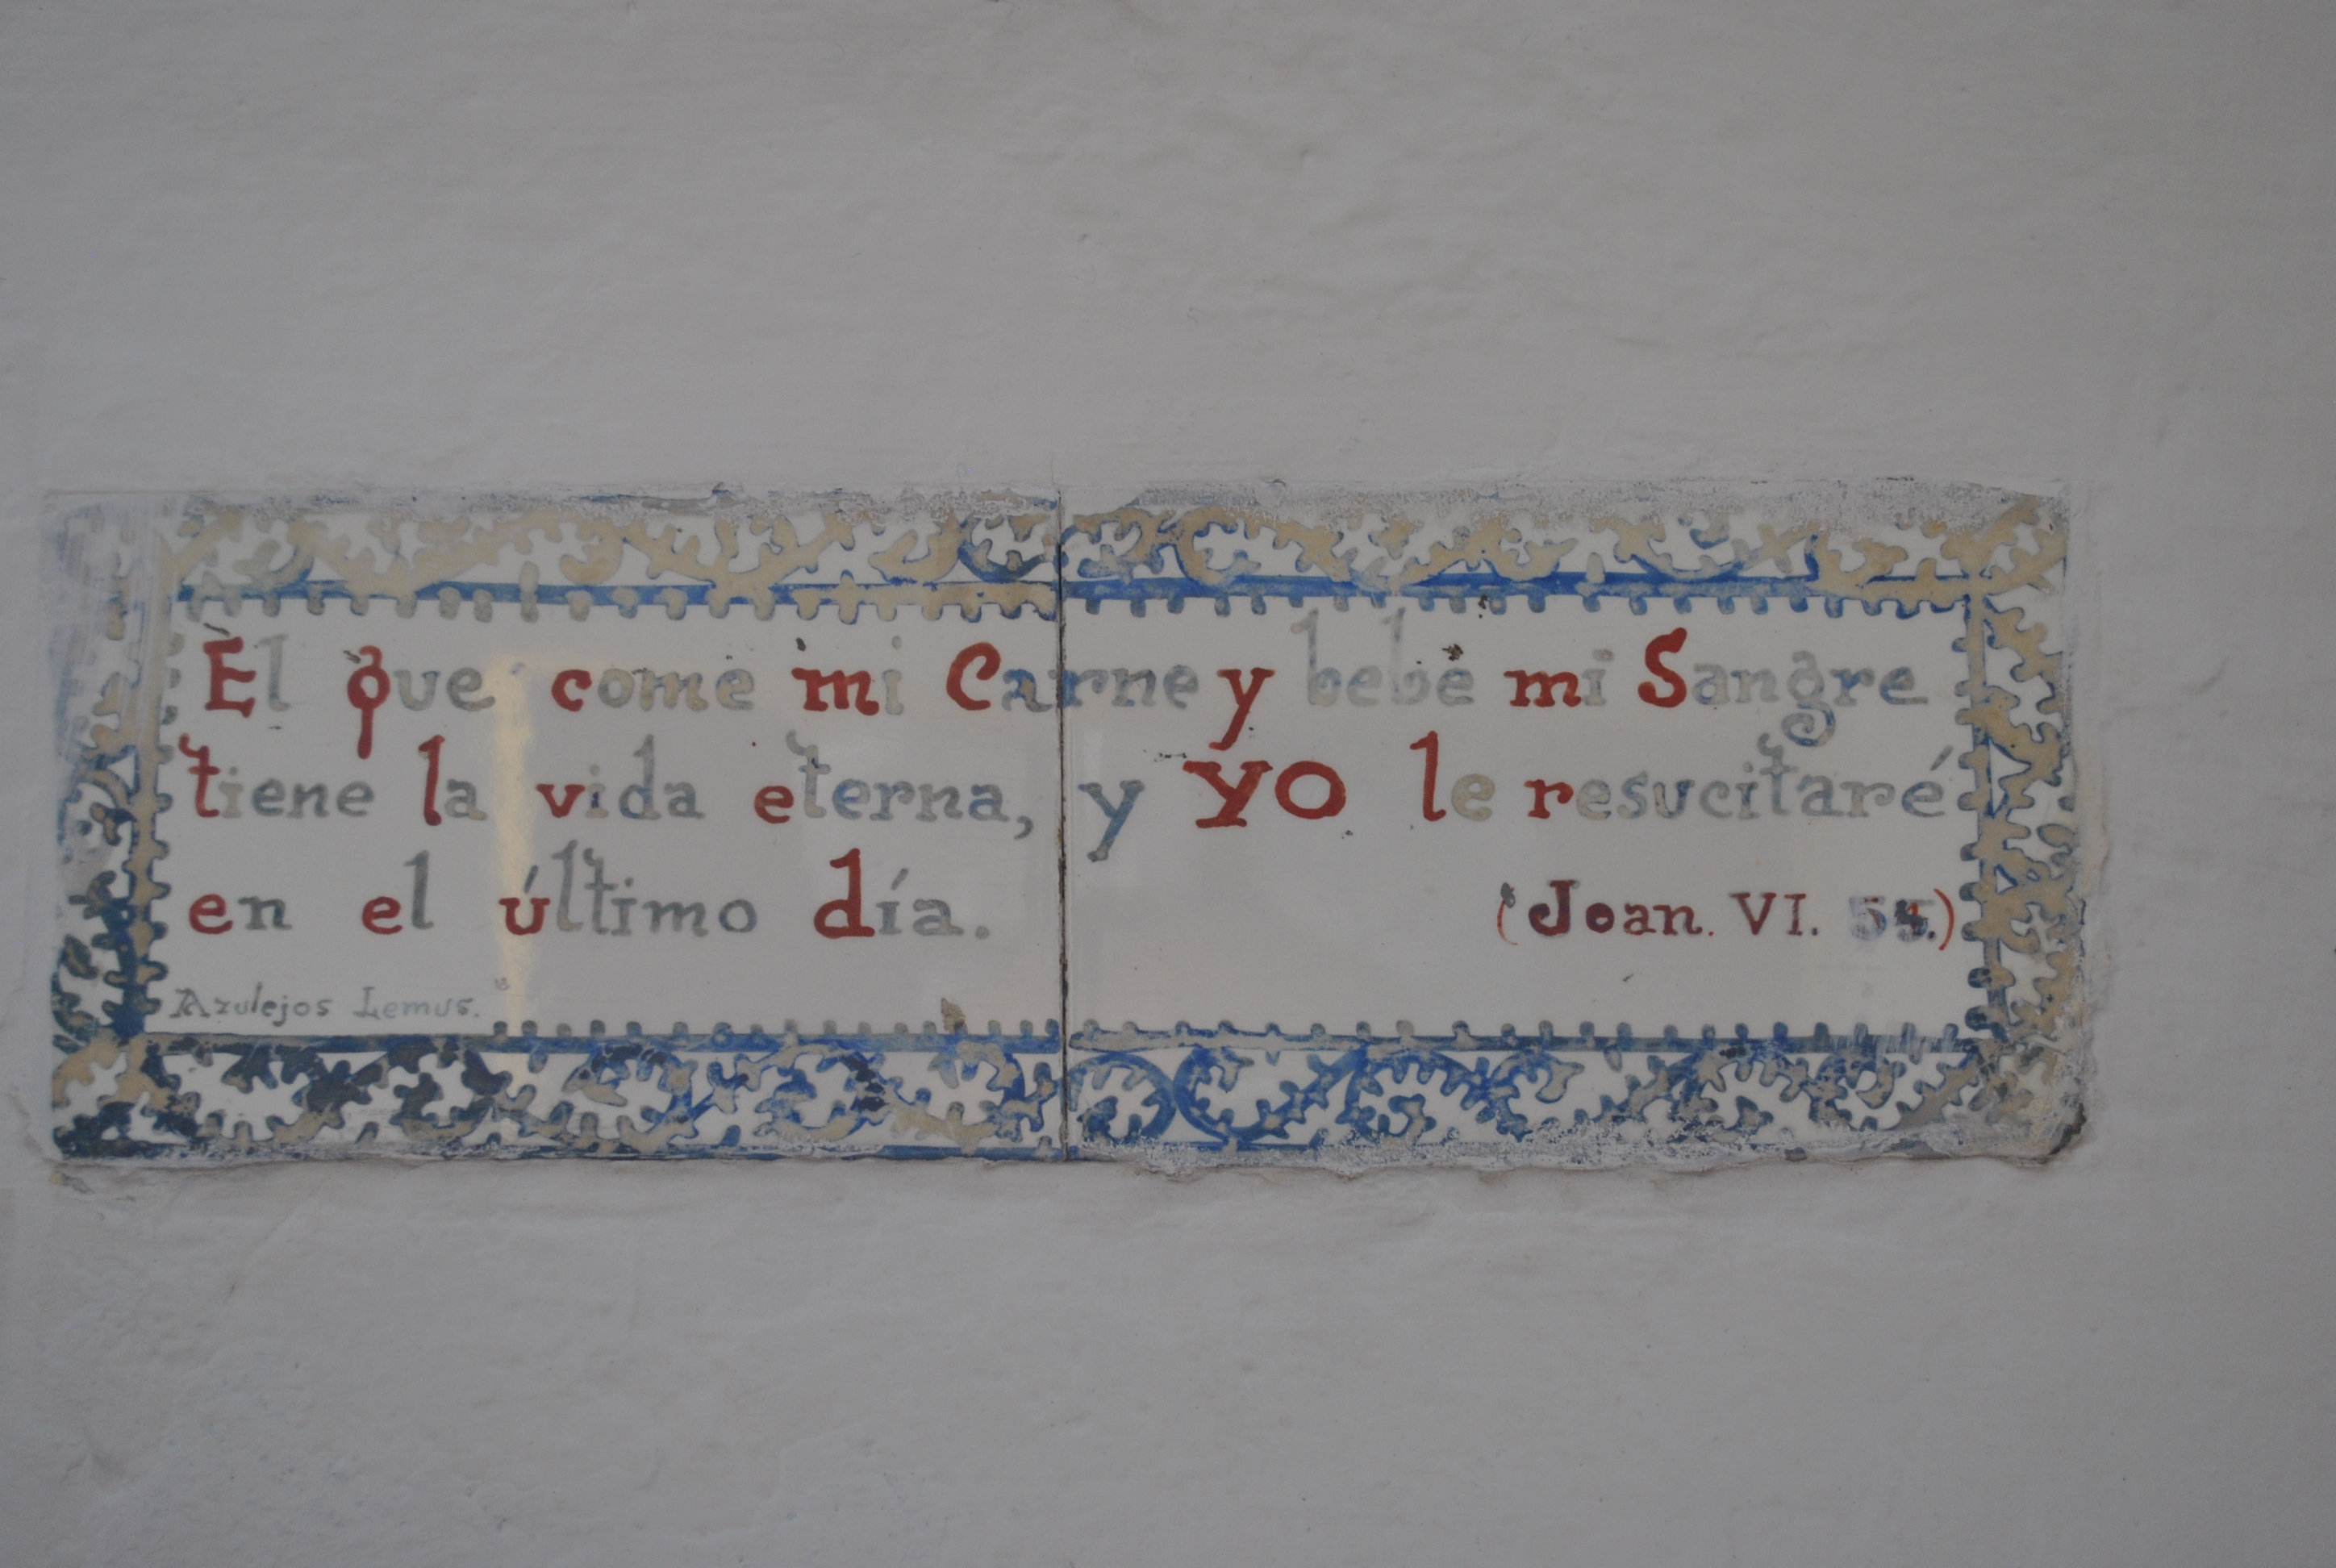 El que come mi Carne y bebe mi Sangre
tiene la vida eterna, y YO le resucitaré
en el último día.
(Joan. VI.
Azulejos Lemus.